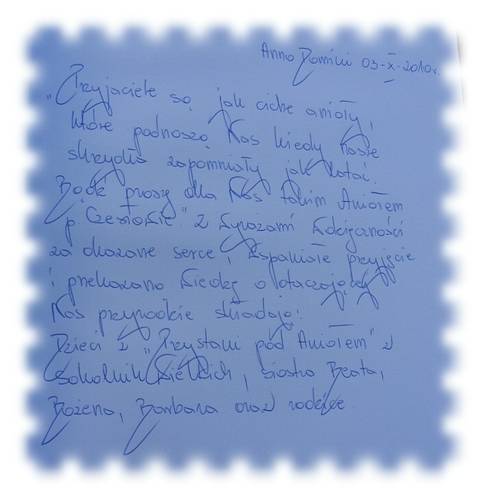 Anno Domini 03-X-2010r.
"Przyjaciele są jak ciche anioły,
które podnoszą Nas kiedy nasze
skrzydła zapomniały jak latać.
Bądź proszę dla Nas takim Aniołem
p. Czesławie" z wyrazami wdzięczności
za okazane serce, wspaniałe przyjęcie
i przekazaną wiedzę o otaczającej
Nas przyrodzie składają:
Dzieci z "Przystani pod Aniołem" z
Sokolnik Wielkich, siostra Beata,
Bożena, Barbara oraz rodzice